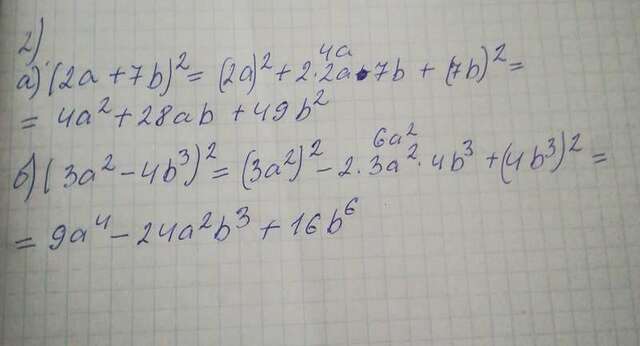 2)
а) (2a + 7b)² = (2a)² + 2·2a·7b + (7b)² =
4a
= 4a² + 28ab + 49b²
б) (3a² - 4b³)² = (3a²)² - 2·3a²·4b³ + (4b³)² =
6a²
= 9a⁴ - 24a²b³ + 16b⁶